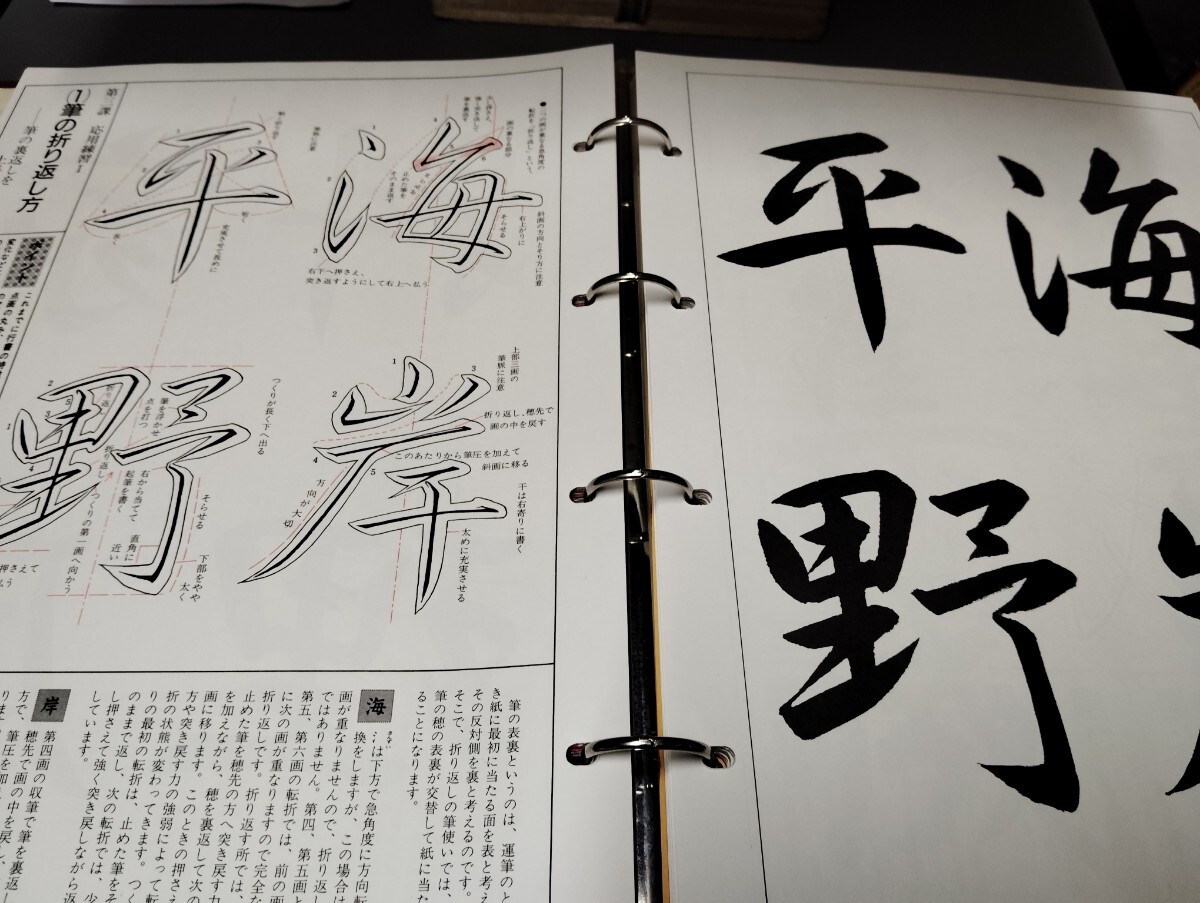 海
平
岸
野
第
課
応用練習1
(1)筆の折り返し方
筆の裏返しを
ポイント
海
平
右下へ押さえ、
突き返すようにして右上へ払う
そらせる
右上がりに
斜画の方向とそり方に注意
止めた筆を
そのまま返す
充実させて長めに
短く
長く
岸
野
上部三画の
筆脈に注意
折り返し、穂先で
画の中を戻す
このあたりから筆圧を加えて
斜画に移る
干は右寄りに書く
方向が大切
太めに充実させる
つくりが長く下へ出る
筆を浮かせ
点を打つ
折り返し
右から当てて
起筆を書く
そらせる
直角に
近い
下部をやや
太く
つくりの第一画へ向かう
押さえて
筆の表裏というのは、運筆のと
き紙に最初に当たる面を表と考え
その反対側を裏と考えるのです。
そこで、折り返しの筆使いでは、
筆の穂の表裏が交替して紙に当た
ることになります。
海
さんずい
氵は下方で急角度に方向転
換をしますが、この場合は
画が重なりませんので、折り返し
ではありません。第四、第五画と
第五、第六画の転折では、前の画
に次の画が重なりますので完全な
折り返しです。折り返す所では、
止めた筆を穂先の方へ突き戻す力
を加えながら、穂を裏返して次の
画に移ります。このときの押さえ
方や突き戻す力の強弱によって転
折の状態が変わってきます。つく
りの最初の転折は、止めた筆をそ
のままで返し、次の転折では、少
し押さえて強く突き戻しながら返
しています。
岸
第四画の収筆で筆を裏返し
穂先で画の中を戻し、